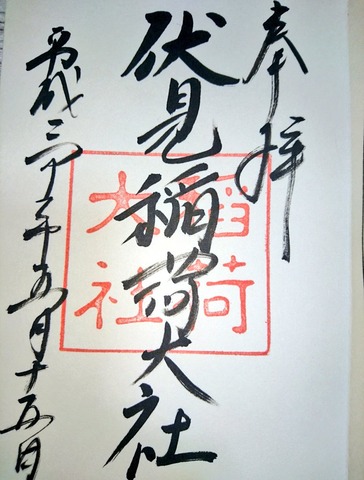 奉拝
伏見稲荷大社
稲荷
大社
平成三十年五月十五日